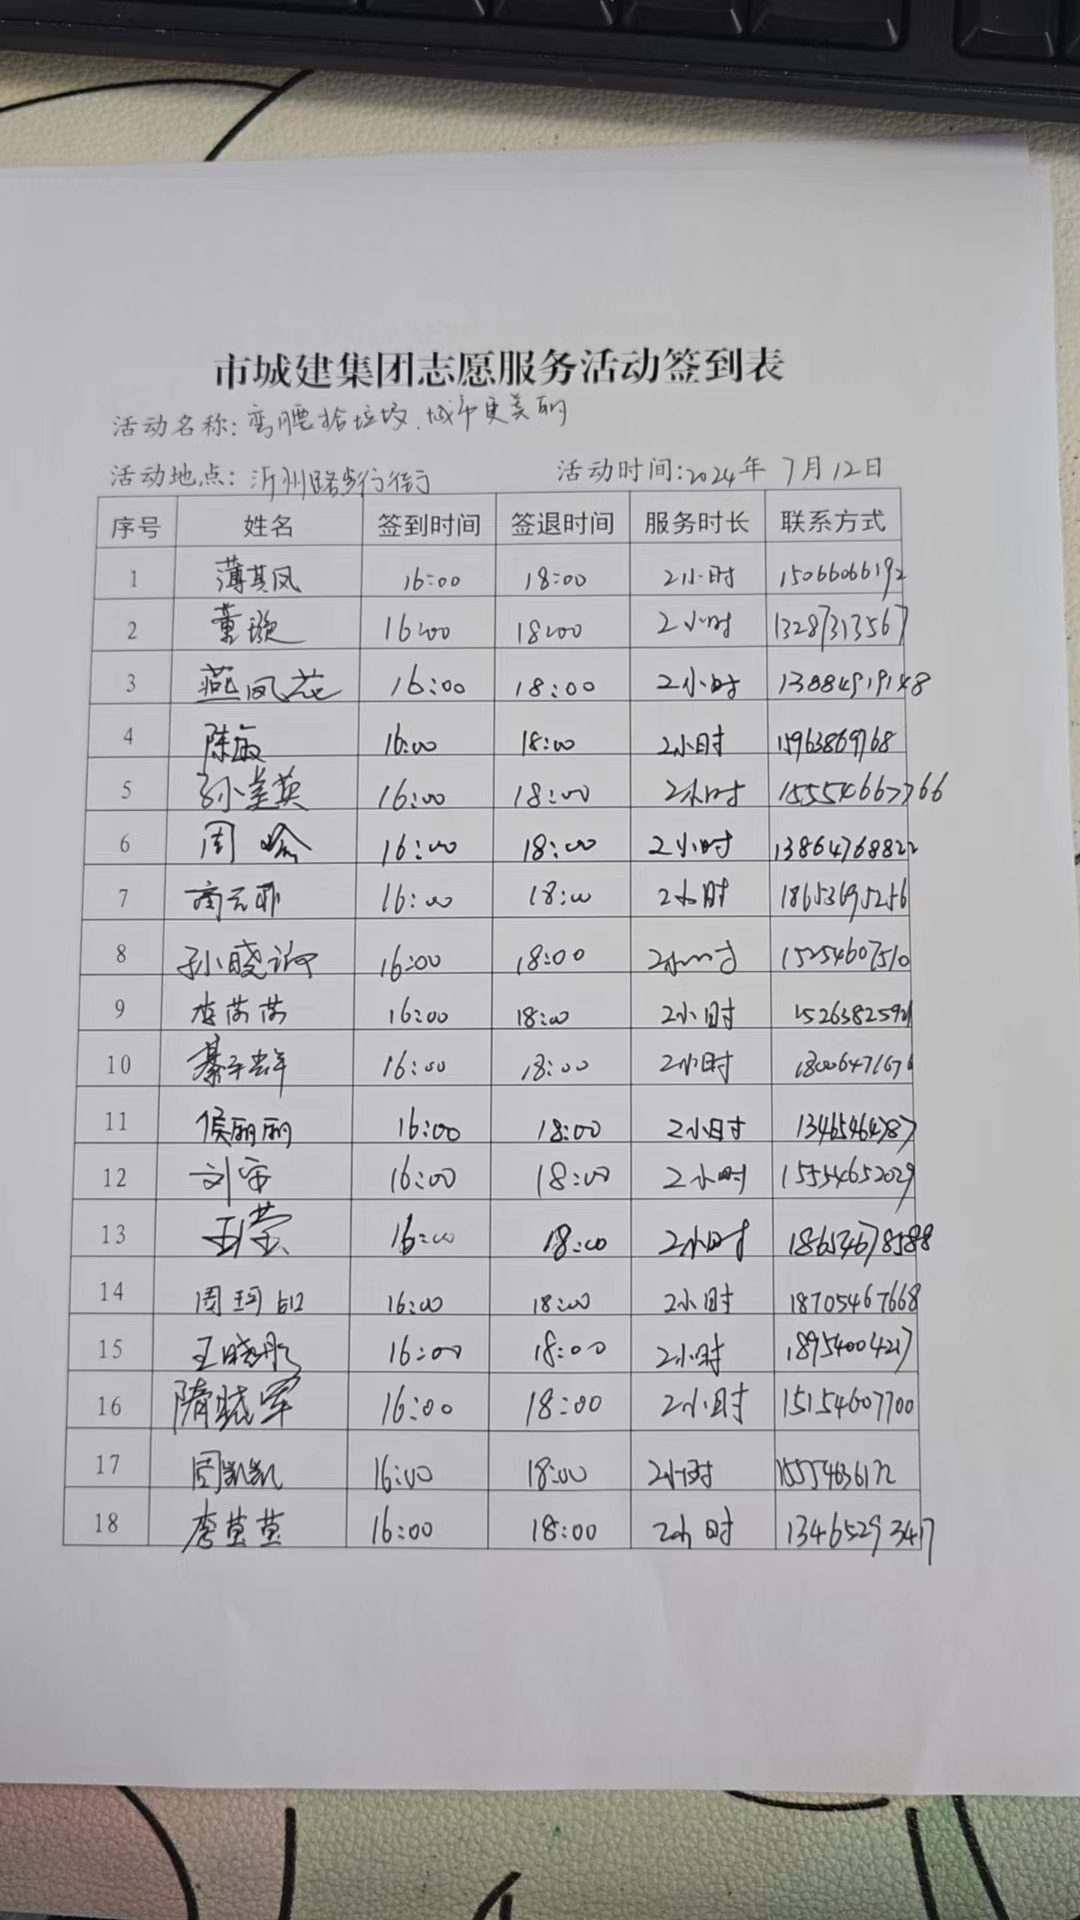 市城建集团志愿服务活动签到表
活动名称:弯腰拾垃圾、城市更美丽
活动地点:沂州路步行街 活动时间:2024年 7月12日
序号 姓名 签到时间 签退时间 服务时长 联系方式
1 薄其凤 16:00 18:00 2小时 15066066192
2 董璇 16:00 18:00 2小时 13287313567
3 燕凤花 16:00 18:00 2小时 13884919148
4 陈敏 16:00 18:00 2小时 15963869768
5 孙美英 16:00 18:00 2小时 15554667766
6 周 16:00 18:00 2小时 13864768822
7 商元菲 16:00 18:00 2小时 18653695256
8 孙晓 16:00 18:00 2小时 15254607510
9 李芮芮 16:00 18:00 2小时
10 綦 16:00 18:00 2小时 18006471676
11 侯丽丽 16:00 18:00 2小时 13465464787
12 刘安 16:00 18:00 2小时 15554652029
13 王莹 16:00 18:00 2小时 18654678588
14 周珂 16:00 18:00 2小时 18705467668
15 王晓彤 16:00 18:00 2小时 18954004217
16 隋晓军 16:00 18:00 2小时 15154607700
17 周凯凯 16:00 18:00 2小时 15554636172
18 李莹莹 16:00 18:00 2小时 13465293417